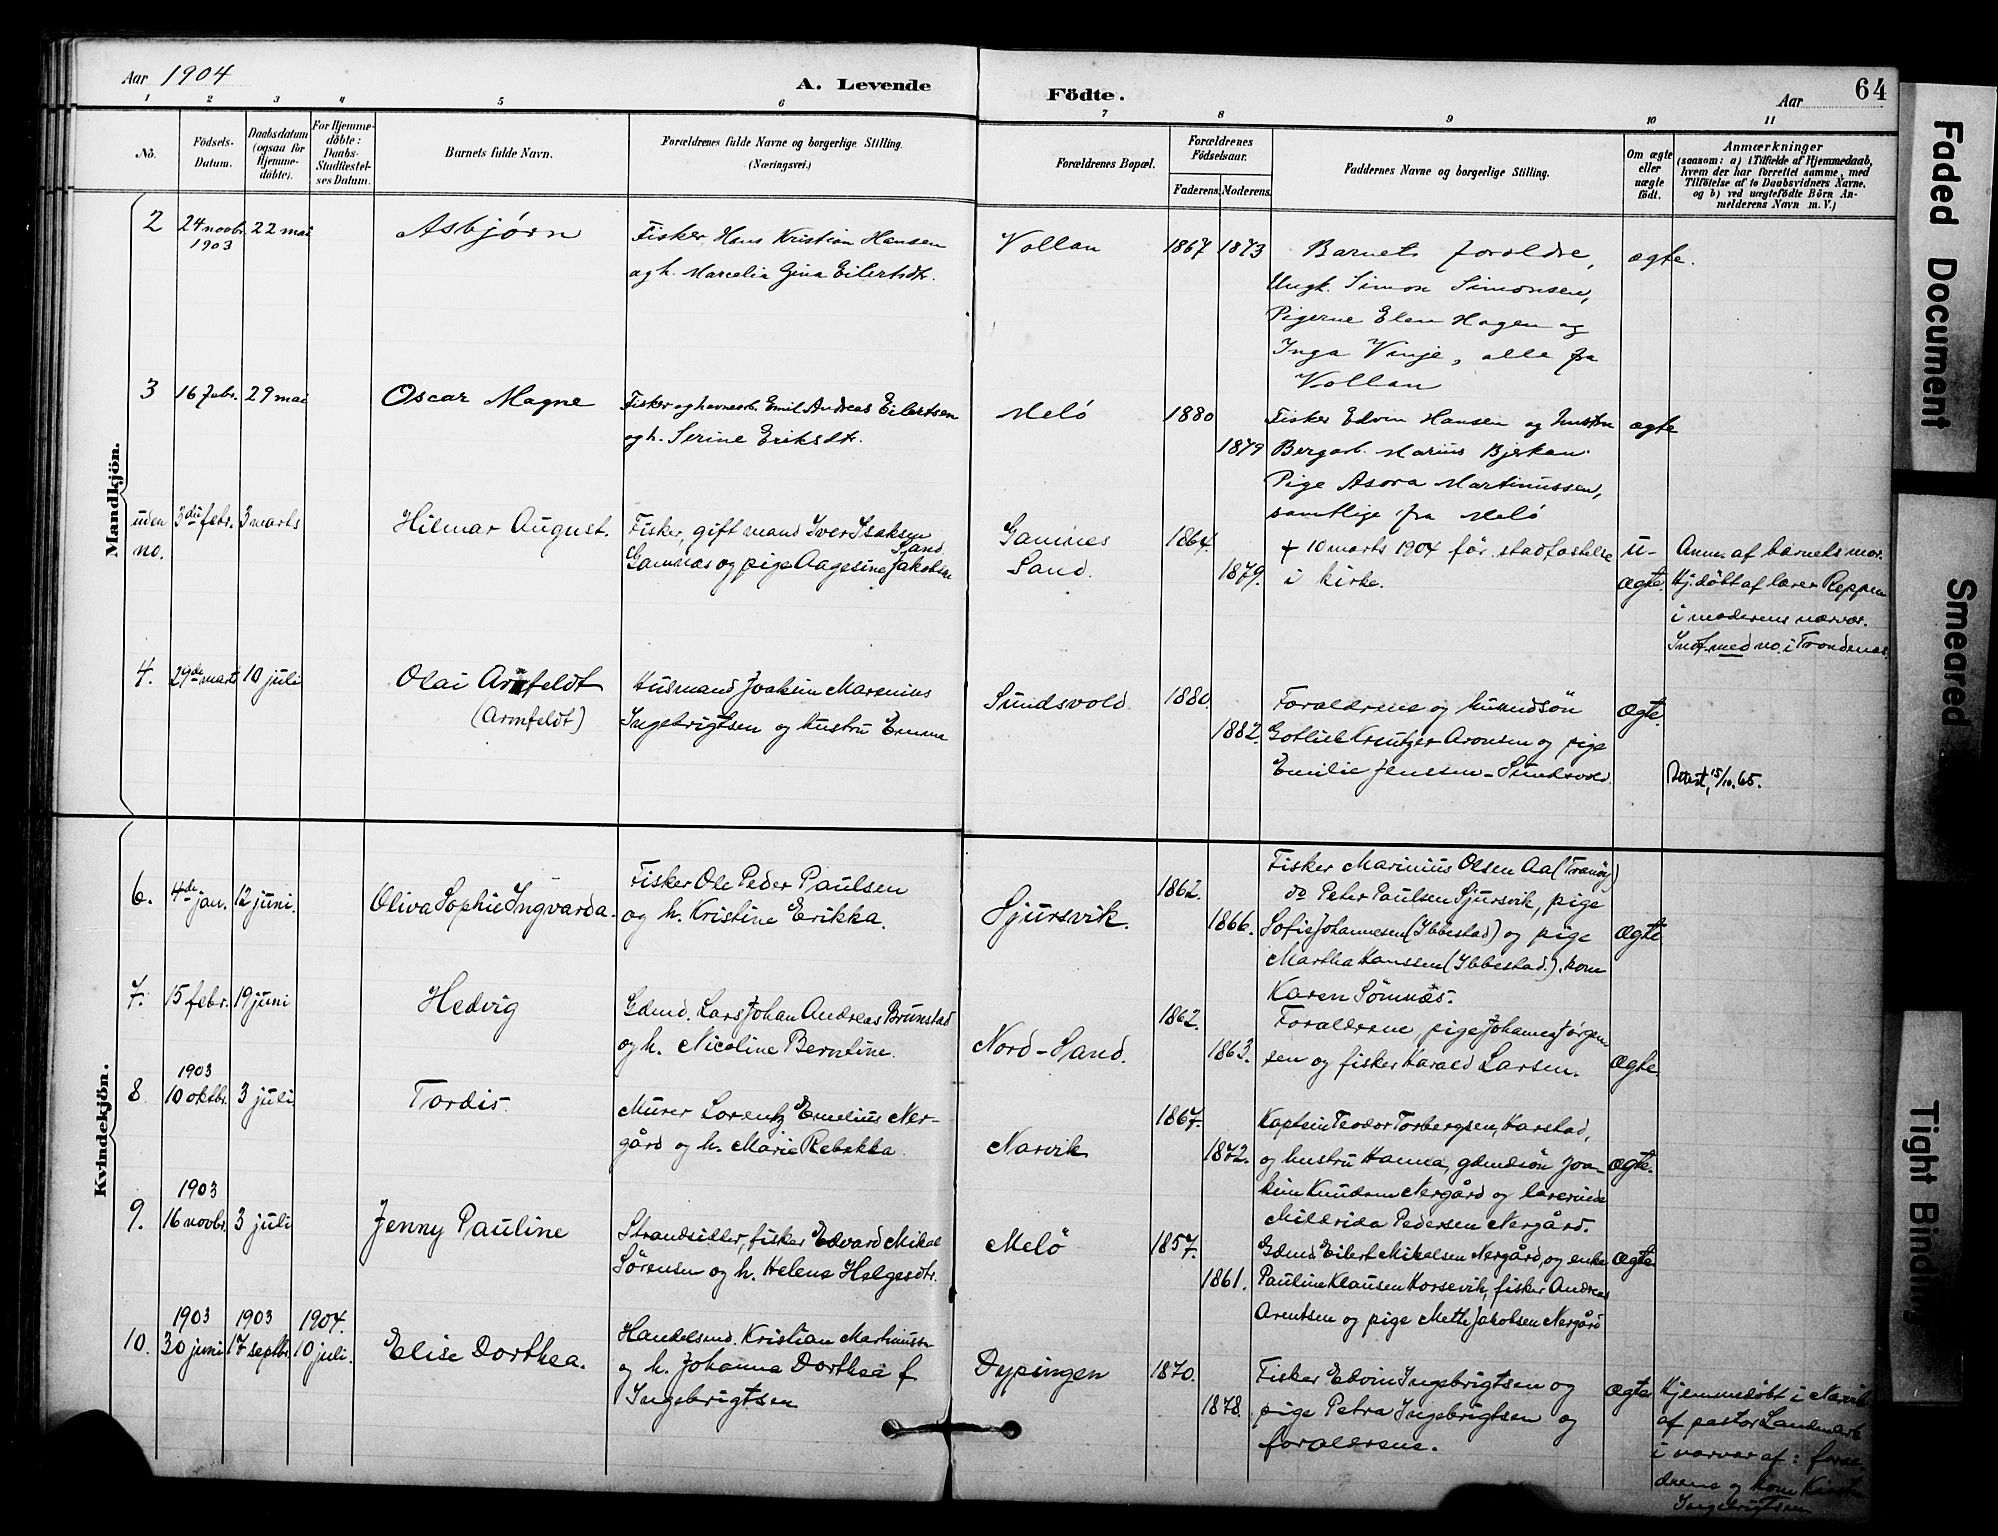 Aar 1904
A. Levende
Födte.
Aar
64
1 2 3 4 5 6 7 8 9 10 11
No.
Födsels-
Datum.
Daabsdatum
(ogsaa for
Hjemme-
döbte).
For Hjemme-
döbte:
Daabs-
Stadfæstel-
ses Datum.
Barnets fulde Navn.
Forældrenes fulde Navne og borgerlige Stilling.
(Næringsvei.)
Forældrenes Bopæl.
Forældrenes
Födselsaar.
Faderens. Moderens.
Faddernes Navne og borgerlige Stilling.
Om ægte
eller
uægte
födt.
Anmærkninger
(saasom: a) i Tilfælde af Hjemmedaab,
hvem der har forrettet samme, med
Tilföielse af to Daabsvidners Navne.
og b) ved uægtefödte Börn An-
melderens Navn m. V.)
Mandkjön.
2
24 novbr.
1903
22 mai
Asbjørn
Fisker Hans Kristian Hansen
og h. Marcelia Gina Eilertsdtr.
Vollan
1867 1873
Barnets foreldre,
Ungk. Simon Simonsen,
Pigerne Elen Hagen og
Inga Vinje, alle fra
Vollan
ægte.
3
16 febr.
29 mai
Oscar Magne
Fisker og havnearb. Emil Andreas Eilertsen
og h. Serine Eriksdtr.
Melö
1880
1879
Fisker Edvin Hansen og hustru
Bergarb. Marius Bjekan.
Pige Asora Martinussen,
samtlige fra Melö
ægte
uden
no.
3die febr.
3 marts
Hilmar August.
Fisker, gift mand Iver Isaksen
Sand
Gamnes og pige Aagesine Jakobsen
Gamnes
Sand.
1864.
1879.
+ 10 marts 1904 før stadfæstelse
i kirke.
u-
ægte.
Anm. af barnets mor.
Hj.døbt af lærer Reppen
i moderens nærvær.
Indf. med no. i Trondenæs.
4.
29de marts
10 juli
Olai Arnfeldt
(Armfeldt)
Husmand Joakim Marenius
Ingebrigtsen og hustru Emma
Sundsvold
1880.
1882.
Forældrene og husmdsön
Gotlieb Kreutzer Aronsen og pige
Emilie Jenssen - Sundsvold.
Ægte.
Attest, 15/10. 65.
Kvindekjön.
6.
4de jan.
12 juni.
Oliva Sophie Ingvarda.
Fisker Ole Peder Paulsen
og h. Kristine Erikka.
Sjursvik.
1862.
1866.
Fisker Marinius Olsen Aa (Tranöy)
do Peter Paulsen Sjursvik, pige
Sofie Johannesen (Ibbestad) og pige
Martha Hanssen (Ibbestad.). kone
Karen Sömnæs.
Ægte
7.
15 febr.
19 juni
Hedvig
Gdmd. Lars Johan Andreas Brunstad
og h. Nicoline Berntine.
Nord-Sand.
1862.
1863.
Forældrene, pige Johanna Jørgen-
sen og fisker Harald Larsen.
Ægte.
8.
1903
10 oktbr.
3 juli.
Tordis.
Murer Lorentz Emelius Ner-
gård og h. Marie Rebekka.
Narvik
1867.
1872.
Kaptein Teodor Torbergsen, Harstad,
og hustru Hanna, gdmdsön Joa-
kim Knudsen Nergård og lærerinde
Mildrida Pedersen Nergård.
Ægte.
9.
1903
16 novbr.
3 juli
Jenny Pauline
Strandsidder, fisker Edvard Mikal
Sörensen og h. Helena Helgesdtr.
Melö
1857.
1861.
Gdmd. Eilert Mikalsen Nergård, og enke
Pauline Klausen Horsevik, fisker Andreas
Arentsen og pige Mette Jakobsen Nergård
Ægte.
10.
1903
30 juni
1903
17 septbr.
1904.
10 juli.
Elise Dorthea.
Handelsmd. Kristian Martinussen
og h. Johanna Dorthea f.
Ingebrigtsen
Dypingen
1870.
1878.
Fisker Edvin Ingebrigtsen og
pige Petra Ingebrigtsen og
forældrene.
Ægte
Hjemmedøbt i Narvik
af pastor Landmark
i nærvær af: foræl-
drene og kone Kirstin
Ingebrigtsen
Faded Document
Smeared
Tight Binding